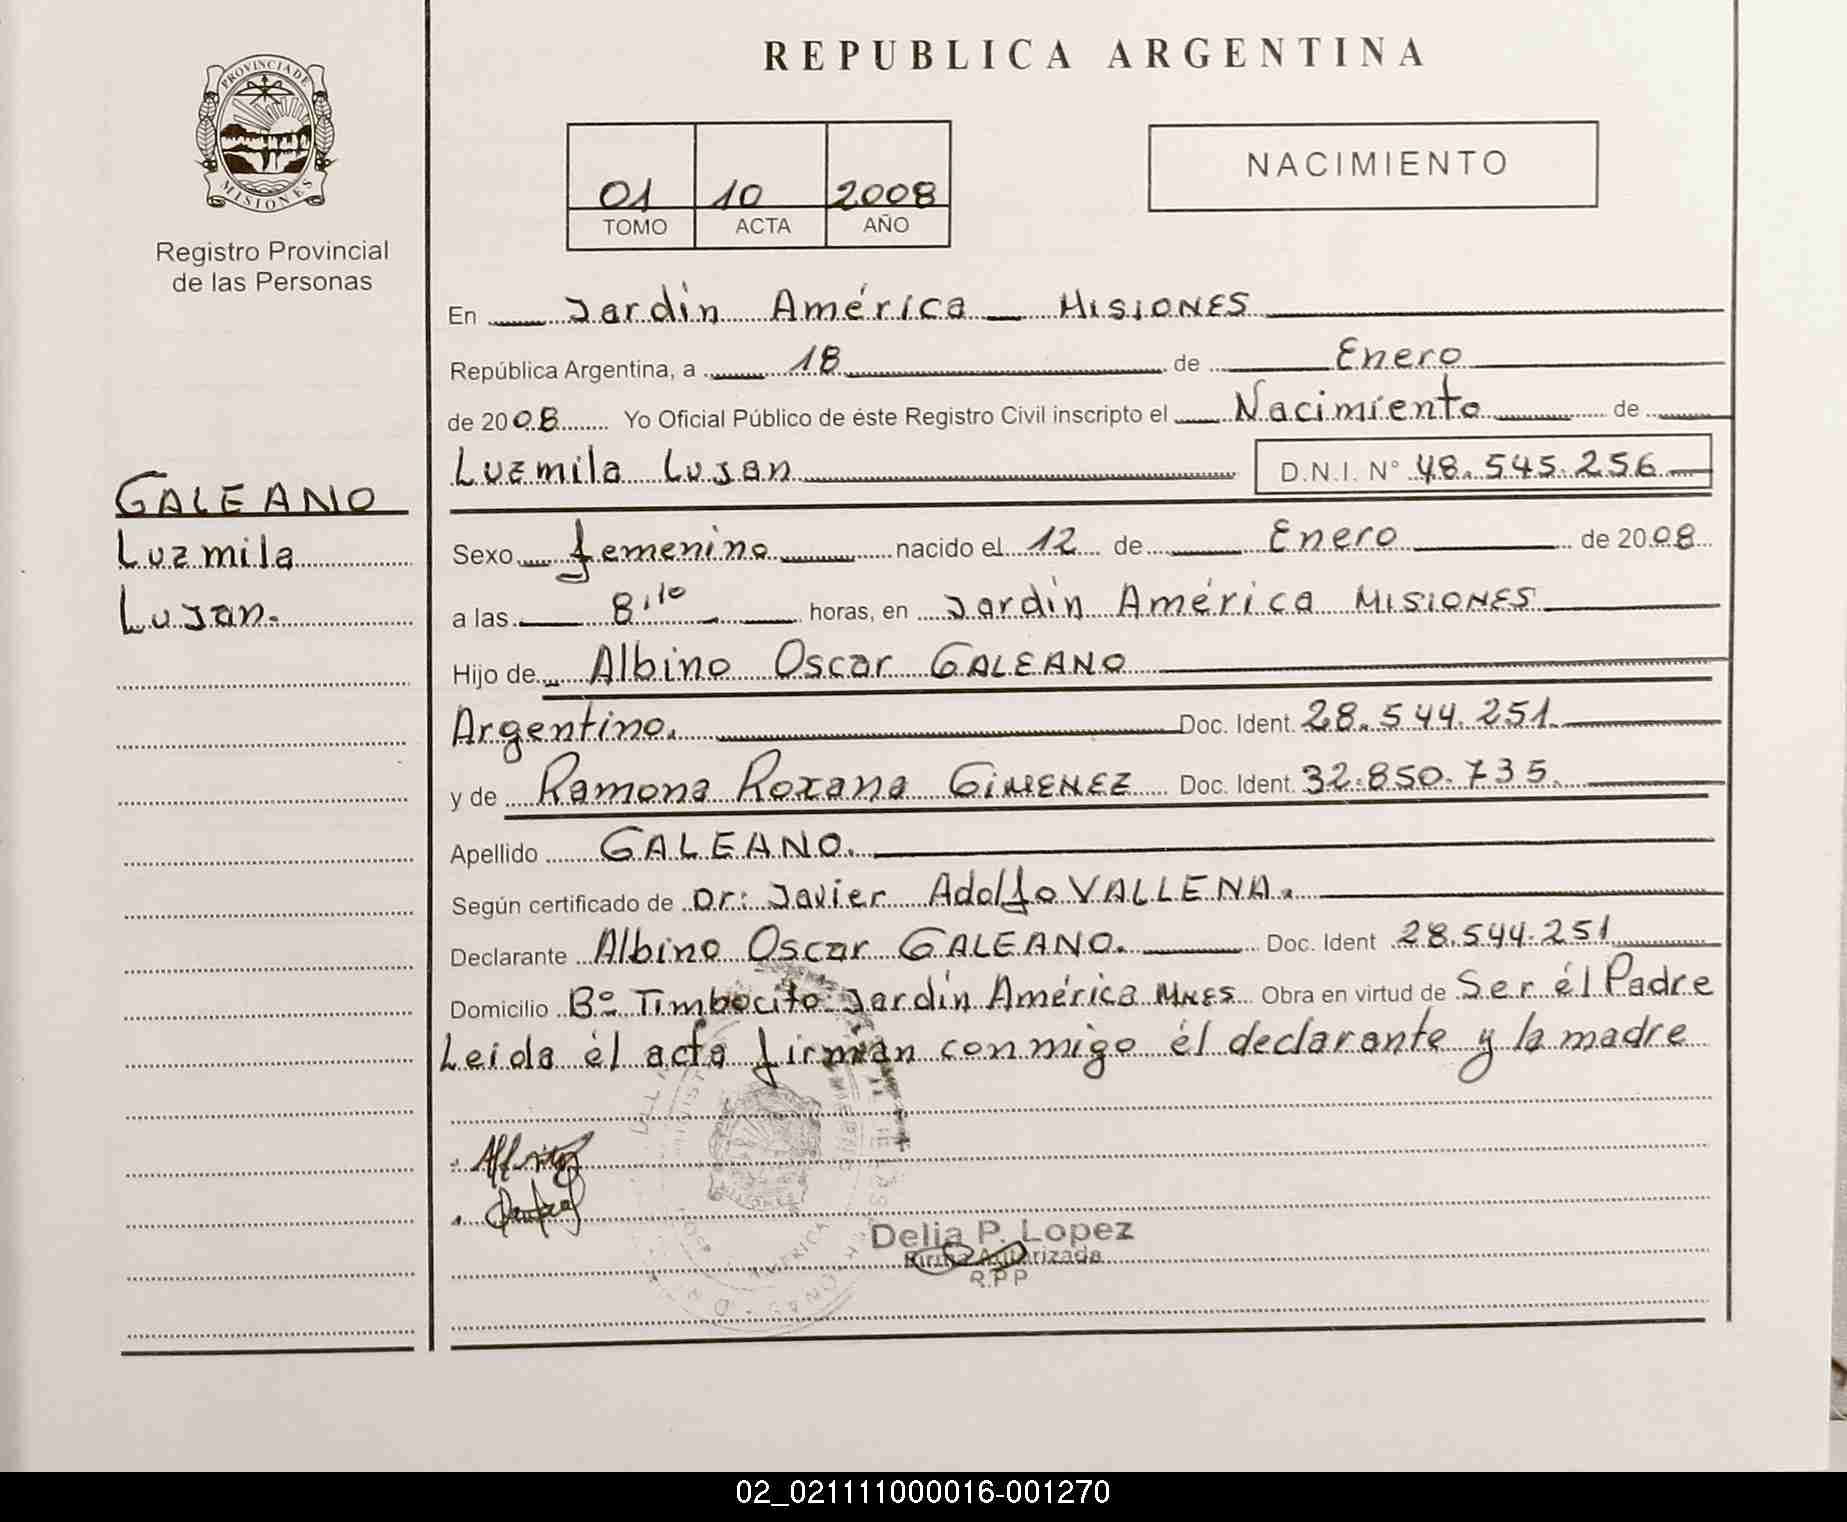 PROVINCIA DE
MISIONES
Registro Provincial
de las Personas
GALEANO
Luzmila
Lujan.
REPUBLICA ARGENTINA
01 10 2008
TOMO ACTA AÑO
NACIMIENTO
En Jardin América MISIONES
República Argentina, a 18 de Enero
de 2008 Yo Oficial Público de éste Registro Civil inscripto el Nacimiento de
Luzmila Lujan D.N.I. N° 48.545.256
Sexo femenino nacido el 12 de Enero de 2008
a las 8,10 horas, en Jardin América MISIONES
Hijo de Albino Oscar GALEANO
Argentino. Doc. Ident. 28.544.251
y de Ramona Roxana GIMENEZ Doc. Ident. 32.850.735.
Apellido GALEANO.
Según certificado de Dr: Javier Adolfo VALLENA.
Declarante Albino Oscar GALEANO. Doc. Ident 28.544.251
Domicilio B° Timbocito Jardín América MNES Obra en virtud de Ser él Padre
Leida él acta firman conmigo él declarante y la madre
Delia P. Lopez
Firma Autorizada
R.P.P
AMERICA
02_021111000016-001270